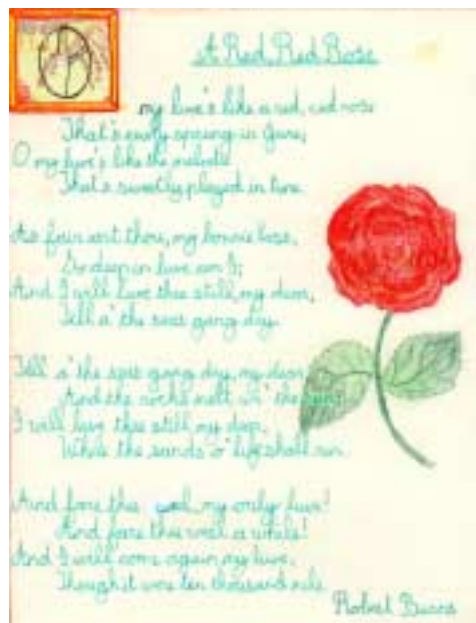 A Red, Red Rose
O my luve's like a red, red rose
That's newly sprung in June;
O my luve's like the melodie
That's sweetly played in tune
As fair art thou, my bonnie lass,
So deep in luve am I;
And I will luve thee still, my dear,
Till a' the seas gang dry.
Till a' the seas gang dry, my dear,
And the rocks melt wi' the sun;
I will luve thee still my dear,
While the sands o' life shall run.
And fare thee weel, my only luve!
And fare thee weel a while!
And I will come again my luve,
Though it were ten thousand mile
Robert Burns